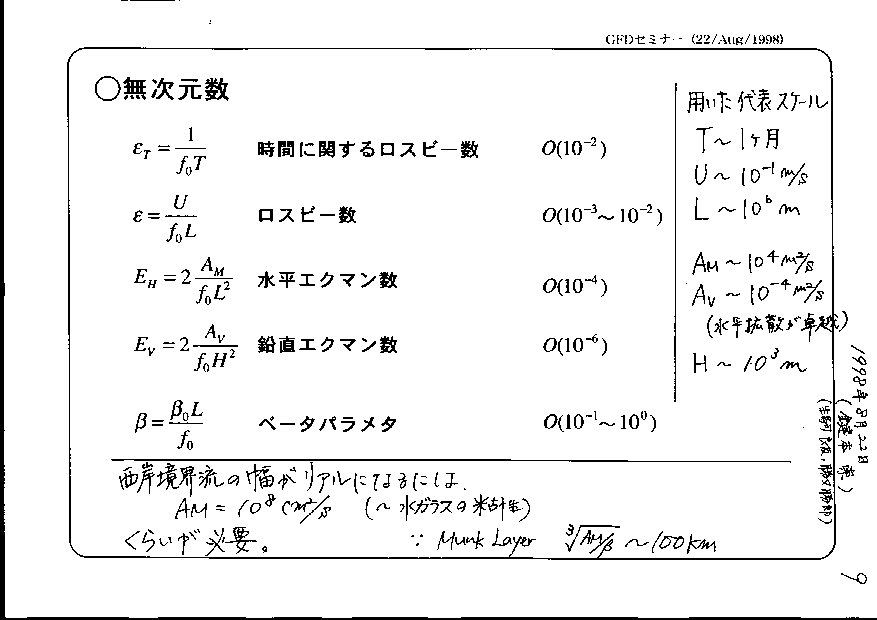 GFDセミナー (22/Aug/1998)
○無次元数
ε_T = 1/(f₀T) 時間に関するロスビー数 O(10⁻²)
ε = U/(f₀L) ロスビー数 O(10⁻³～10⁻²)
E_H = 2 A_M/(f₀L²) 水平エクマン数 O(10⁻⁴)
E_V = 2 A_V/(f₀H²) 鉛直エクマン数 O(10⁻⁶)
β = β₀L/f₀ ベータパラメタ O(10⁻¹～10⁰)
用いた代表スケール
T ～ 1ヶ月
U ～ 10⁻¹ m/s
L ～ 10⁶ m
A_M ～ 10⁴ m²/s
A_V ～ 10⁻⁴ m²/s
(水平拡散が卓越)
H ～ 10³ m
西岸境界流の幅がリアルになるには、
A_M = 10⁸ cm²/s (～水ガラスの粘性)
くらいが必要。 ∵ Munk Layer ∛(A_M/β) ～ 100km
1998年8月22日
9